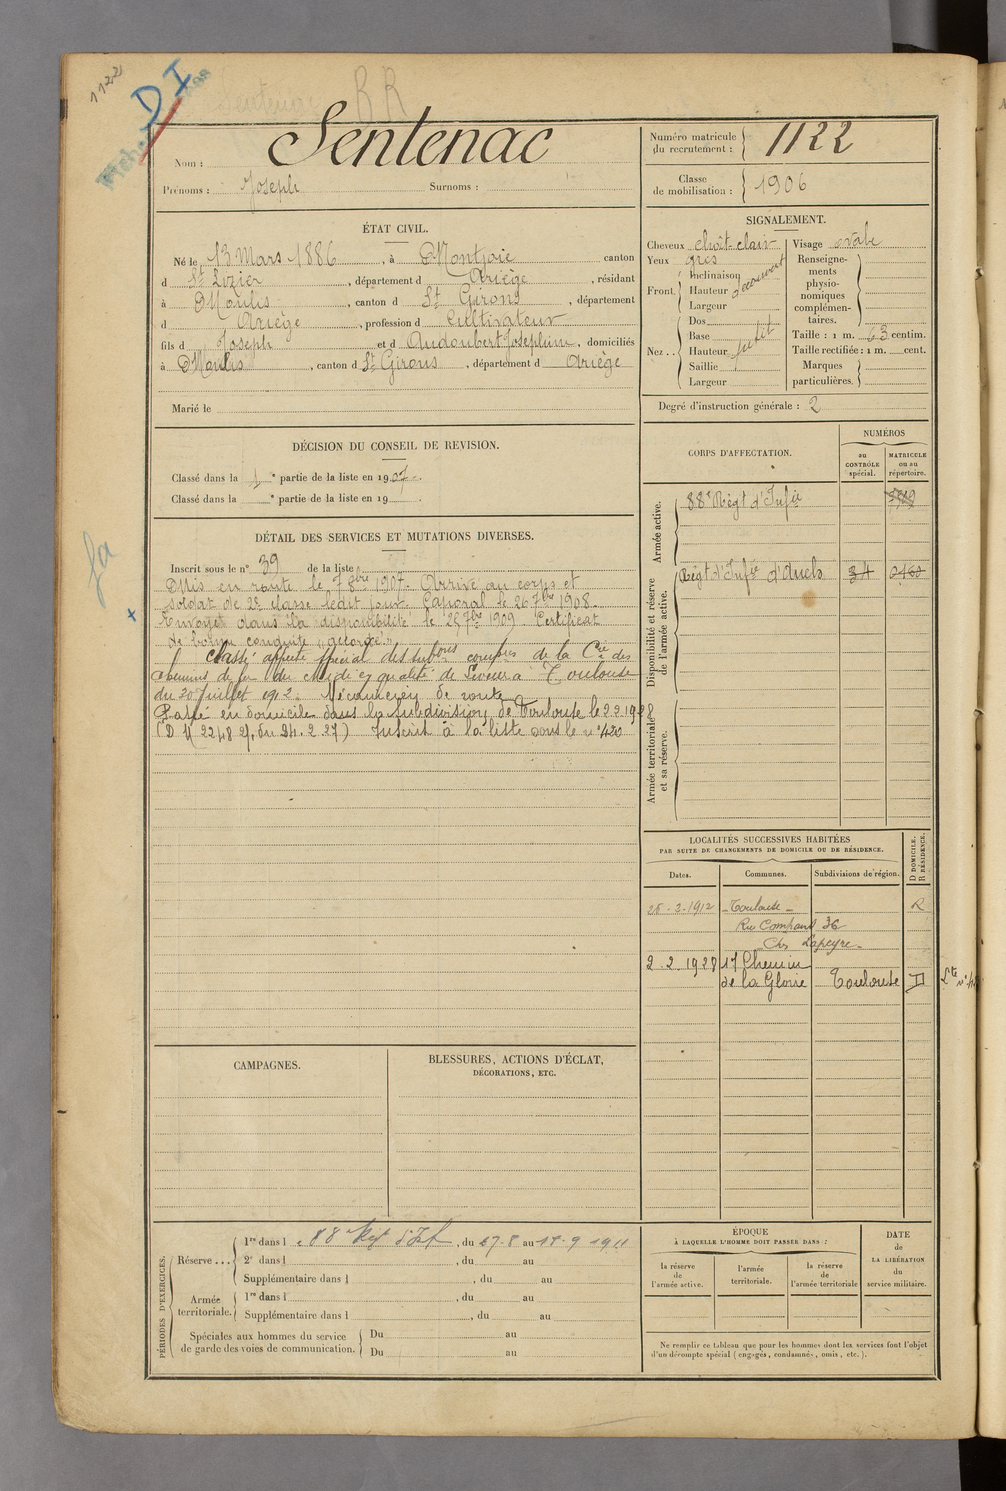 1122
DI
RR
Nom : Sentenac
Prénoms : Joseph Surnoms :
Numéro matricule du recrutement : 1122
Classe de mobilisation : 1906
ÉTAT CIVIL.
Né le 13 Mars 1886, à Montjoie canton
d St Lizier, département d Ariège, résidant
à Moulis, canton d St Girons, département
d Ariège, profession d Cultivateur
fils d Joseph et d Audoubert Joséphine, domiciliés
à Moulis, canton d St Girons, département d Ariège
Marié le
SIGNALEMENT.
Cheveux chât-clair
Yeux gris
Front. Inclinaison
Hauteur découvert
Largeur
Nez .. Dos
Base
Hauteur petit
Saillie
Largeur
Visage ovale
Renseignements physionomiques complémentaires.
Taille : 1 m. 63 centim.
Taille rectifiée : 1 m. cent.
Marques particulières.
Degré d'instruction générale : 2
DÉCISION DU CONSEIL DE REVISION.
Classé dans la 1 e partie de la liste en 1907.
Classé dans la e partie de la liste en 19 .
DÉTAIL DES SERVICES ET MUTATIONS DIVERSES.
Inscrit sous le n° 39 de la liste
Mis en route le 7 8bre 1907. Arrivé au corps et
soldat de 2e classe ledit jour. Caporal le 26 7bre 1908.
Envoyé dans la disponibilité le 25 7bre 1909. Certificat
de bonne conduite "accordé".
Classé affecté spécial des subons complres de la Cie des
chemins de fer du Midi en qualité de à Toulouse
du 20 juillet 1912. de route
Passé en domicile dans la subdivision de Toulouse le 2 2 1928
Inscrit à la liste sous le n° 420
CORPS D'AFFECTATION.
NUMÉROS
au CONTRÔLE spécial.
MATRICULE ou au répertoire.
Armée active.
88e Régt d'Infie
Disponibilité et réserve de l'armée active.
Régt d'Infie d'Auch 34
Armée territoriale et sa réserve.
LOCALITÉS SUCCESSIVES HABITÉES
PAR SUITE DE CHANGEMENTS DE DOMICILE OU DE RÉSIDENCE.
Dates. Communes. Subdivisions de région. D DOMICILE. R RÉSIDENCE.
28-3-1912 Toulouse R
Rue Compans 36
Chez Lapeyre
2.2.1928 17 Chemin
de la Gloire Toulouse D
CAMPAGNES.
BLESSURES, ACTIONS D'ÉCLAT,
DÉCORATIONS, ETC.
PÉRIODES D'EXERCICES.
Réserve ... 1re dans l e 88e Regt d'Inf, du 27.8 au 18.9 1911
2e dans l , du au
Supplémentaire dans l , du au
Armée territoriale. 1re dans l , du au
Supplémentaire dans l , du au
Spéciales aux hommes du service de garde des voies de communication. Du au
Du au
ÉPOQUE
À LAQUELLE L'HOMME DOIT PASSER DANS :
la réserve de l'armée active.
l'armée territoriale.
la réserve de l'armée territoriale
DATE de LA LIBÉRATION du service militaire.
Ne remplir ce tableau que pour les hommes dont les services font l'objet
d'un décompte spécial (engagés, condamnés, omis, etc.).